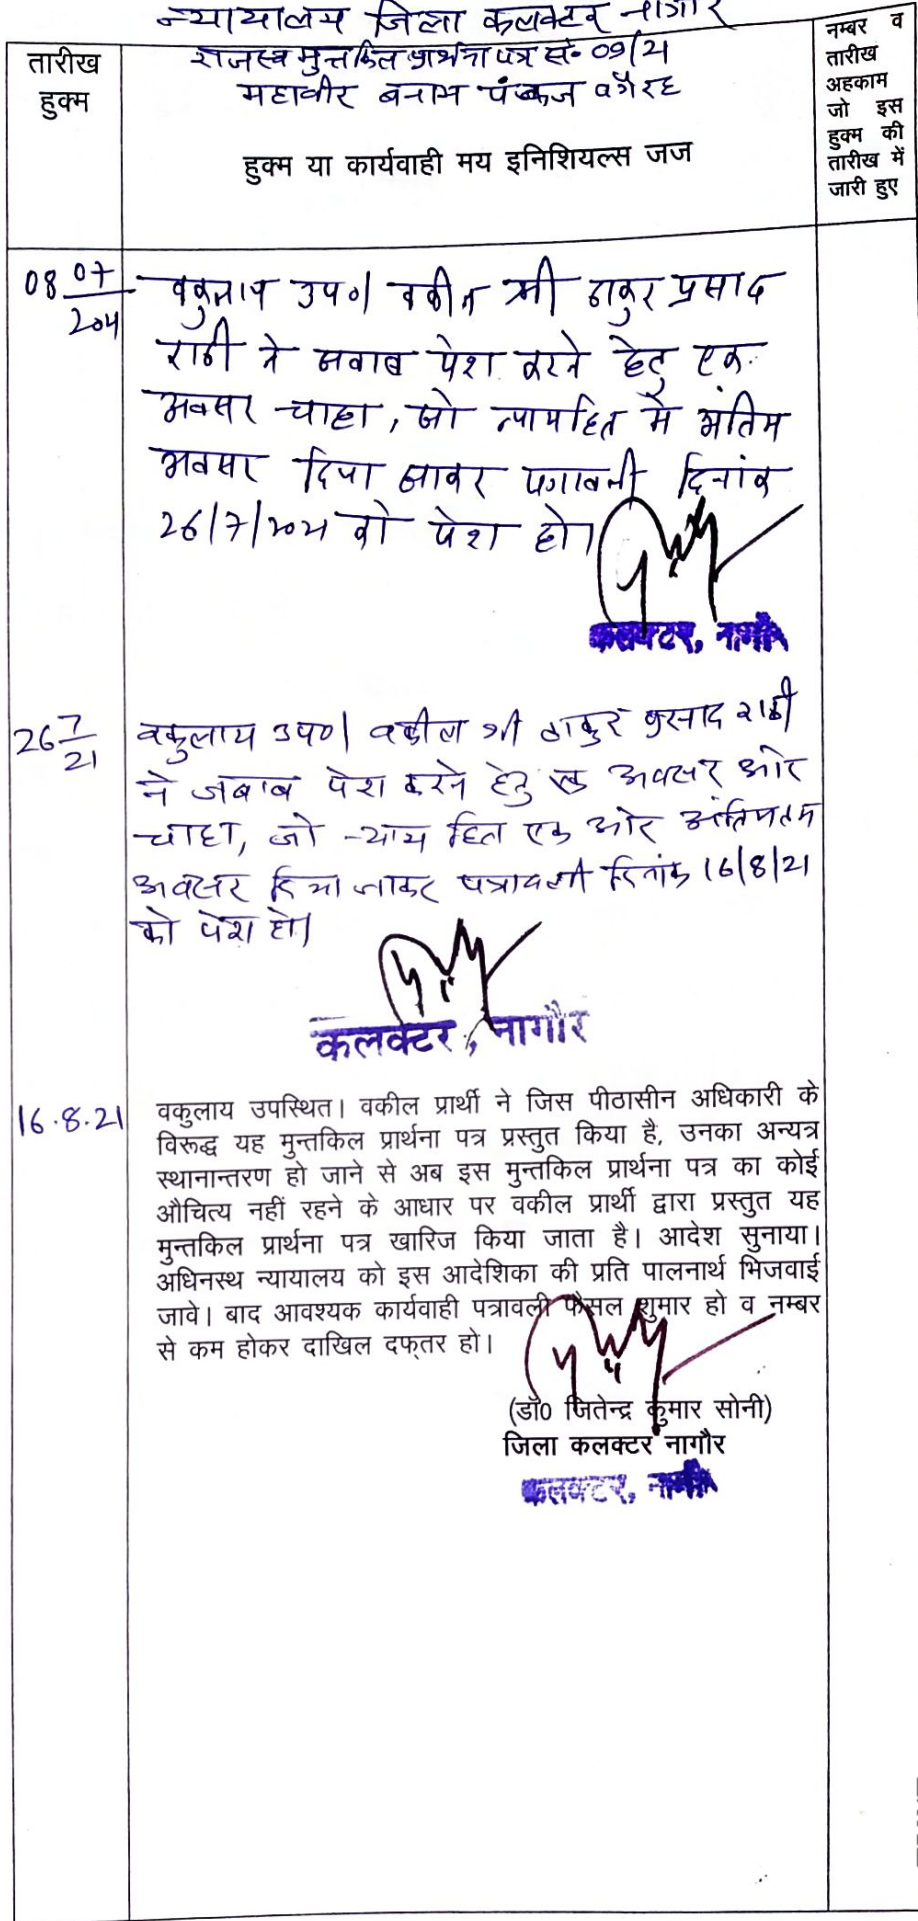 न्यायालय जिला कलक्टर नागौर
राजस्व मुन्तकिल प्रार्थना पत्र सं० 09/21
महावीर बनाम पंकज वगैरह
तारीख
हुक्म
हुक्म या कार्यवाही मय इनिशियल्स जज
नम्बर व
तारीख
अहकाम
जो इस
हुक्म की
तारीख में
जारी हुए
08 07/2021
वकुलाय उप०। वकील श्री ठाकुर प्रसाद
राठी ने जवाब पेश करने हेतु एक
अवसर चाहा, जो न्यायहित में अंतिम
अवसर दिया जाकर पत्रावली दिनांक
26/7/2021 को पेश हो।
कलक्टर, नागौर
26 7/21
वकुलाय उप०। वकील श्री ठाकुर प्रसाद राठी
ने जबाब पेश करने हेतु एक अवसर ओर
चाहा, जो न्याय हित एक ओर अंतिमतम
अवसर दिया जाकर पत्रावली दिनांक 16/8/21
को पेश हो।
कलक्टर, नागौर
16.8.21
वकुलाय उपस्थित। वकील प्रार्थी ने जिस पीठासीन अधिकारी के
विरूद्ध यह मुन्तकिल प्रार्थना पत्र प्रस्तुत किया है, उनका अन्यत्र
स्थानान्तरण हो जाने से अब इस मुन्तकिल प्रार्थना पत्र का कोई
औचित्य नहीं रहने के आधार पर वकील प्रार्थी द्वारा प्रस्तुत यह
मुन्तकिल प्रार्थना पत्र खारिज किया जाता है। आदेश सुनाया।
अधिनस्थ न्यायालय को इस आदेशिका की प्रति पालनार्थ भिजवाई
जावे। बाद आवश्यक कार्यवाही पत्रावली फैसल शुमार हो व नम्बर
से कम होकर दाखिल दफ्तर हो।
(डॉ0 जितेन्द्र कुमार सोनी)
जिला कलक्टर नागौर
कलक्टर, नागौर